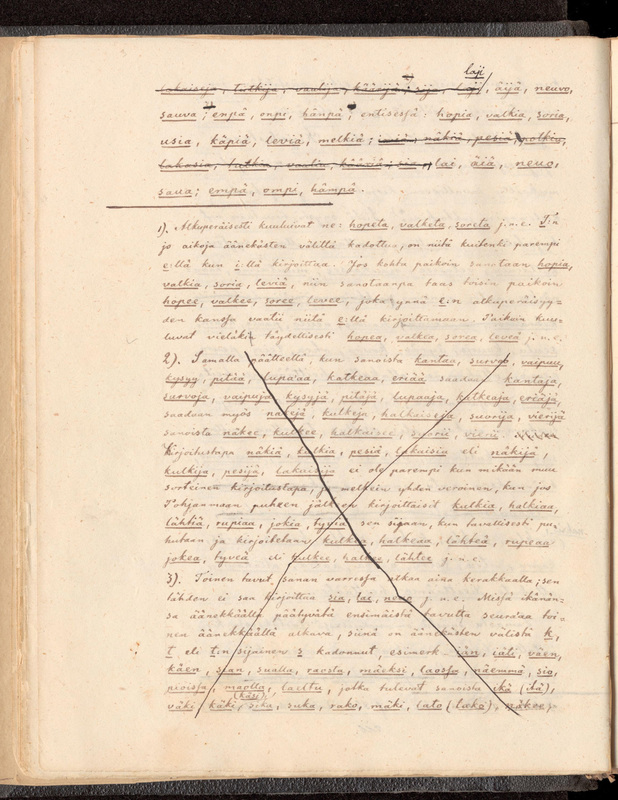 laji
lakaisija, tutkija, vaalija, käärijä; sija, laji, äijä, neuvo,
sauva; enpä, onpi, hänpä; entisessä: hopia, valkia, soria,
usia, käpiä, leviä, melkiä; näkiä, pesiä, polkia,
lakasia, tutkia, vaalia, kääriä; sia, lai, äiä, neuo,
saua; empä, ompi, hämpä.
1). Alkuperäisesti kuuluivat ne: hopeta, valketa, soreta j.n.e. T:n
jo aikoja äänekästen väliltä kadottua, on niitä kuitenki parempi
e:llä kun i:llä kirjoittaa. Jos kohta paikoin sanotaan hopia,
valkia, soria, leviä, niin sanotaanpa taas toisin paikoin
hopee, valkee, soree, levee, joka ynnä e:n alkuperäisyy=
den kanssa vaatii niitä e:llä kirjoittamaan. Paikoin kuu=
luvat vieläkin täydellisesti hopea, valkea, sorea, leveä j.n.e.
2). Samalla päätteellä kun sanoista kantaa, survoo, vaipuu,
kysyy, pitää, lupa'aa, katkeaa, eriää saadaan kantaja,
survoja, vaipuja, kysyjä, pitäjä, lupaaja, katkeaja, eriäjä,
saadaan myös näkejä, kulkeja, halkaiseja, suorija, vierijä
sanoista näkee, kulkee, halkaisee, suorii, vierii.
Kirjoitustapa näkiä, kulkia, pesiä, lakaisia eli näkijä,
kulkija, pesijä, lakaisija ei ole parempi kun mikään muu
svoteinen kirjoitustapa, ja melkein yhden veroinen, kun jos
Pohjanmaan puheen jälkeen kirjoittaisit kulkia, halkiaa,
lähtiä, rupiaa, jokia, tyviä sen sijaan, kun tavallisesti pu=
hutaan ja kirjoitetaan kulkea, halkeaa, lähteä, rupeaa
jokea, tyveä eli kulkee, halkee, lähtee j.n.e.
3). Toinen tavut sanan varressa alkaa aina kerakkaalla; sen
tähden ei saa kirjoittaa sia, lai, neuo j.n.e. Missä ikänän=
sä äänekkäällä päätyvätä ensimäistä tavutta seuraa toi=
nen äänekkäältä alkava, siinä on äänekästen välistä k,
t eli t:n sijainen s kadonnut, esimerk. iän, iäti, väen,
käen, sian, sualla, raosta, mäeksi, laossa, näemmä, sio,
peoissa, maolla, laittu, jotka tulevat sanoista ikä (ikä),
(käsi)
väki, käki, sika, suka, rako, mäki, lato (lako), näkee,